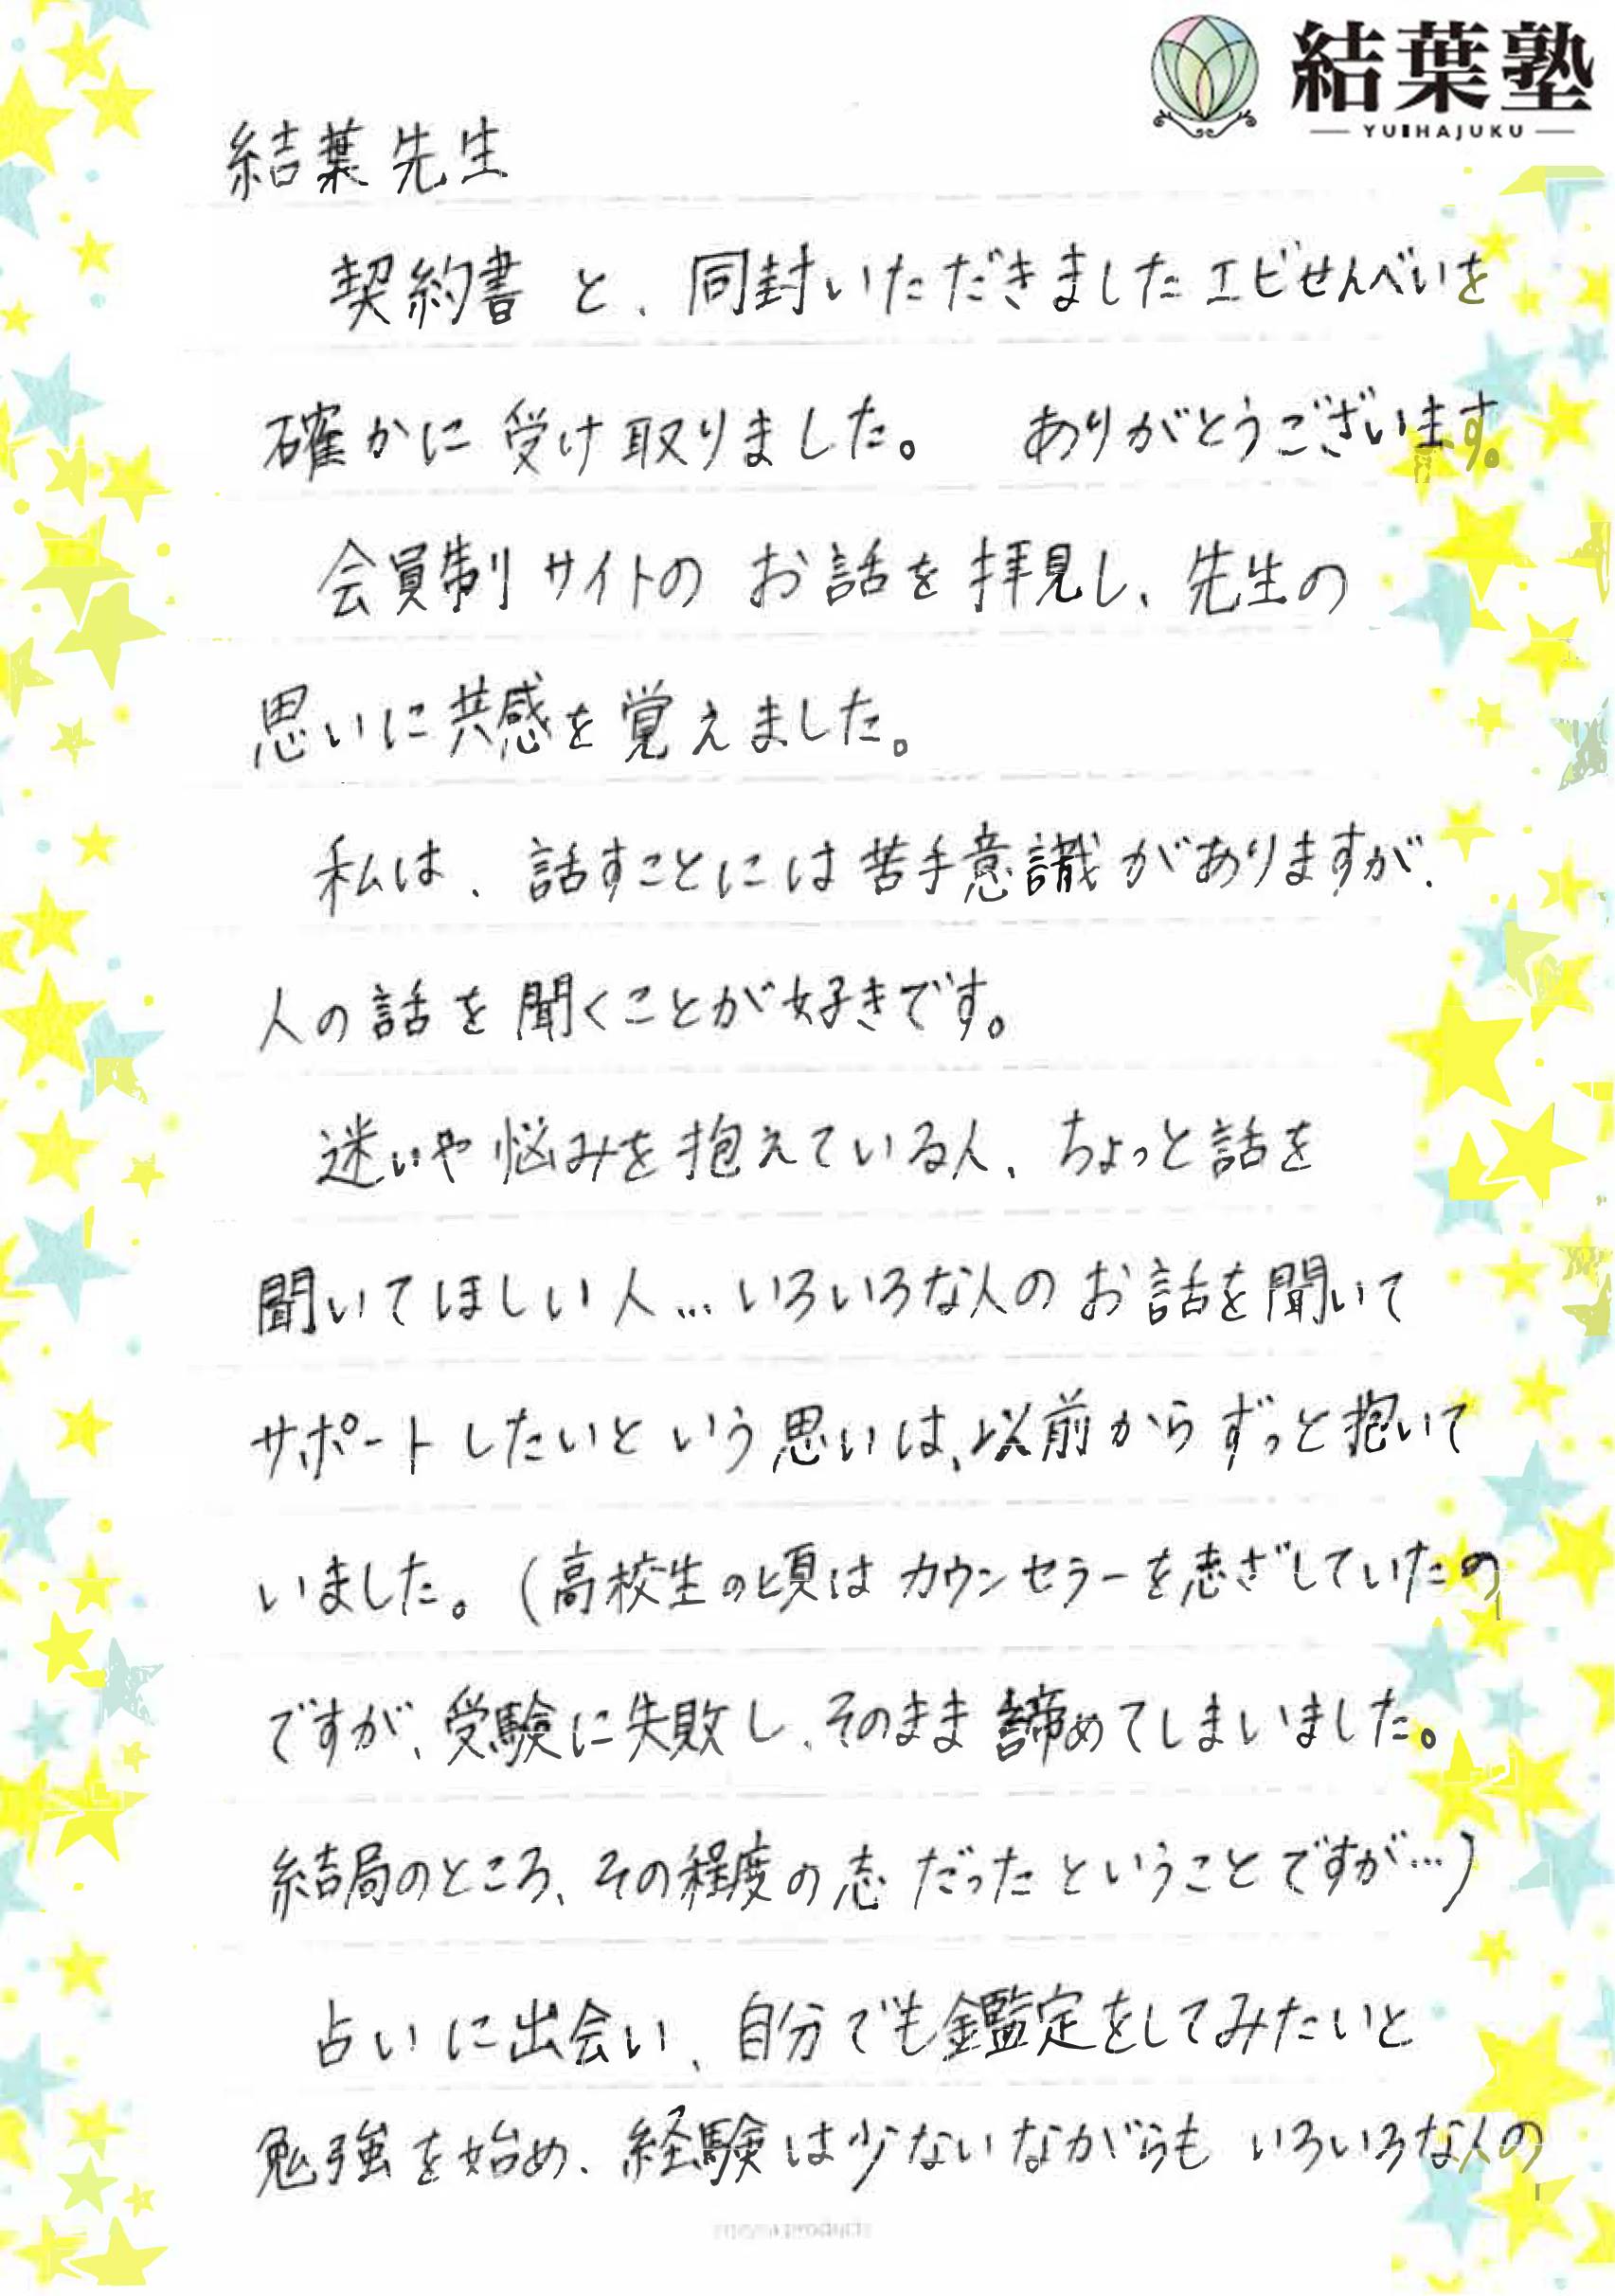 結葉塾
YUIHAJUKU
結葉先生
契約書と、同封いただきましたエビせんべいを
確かに受け取りました。 ありがとうございます。
会員制サイトのお話を拝見し、先生の
思いに共感を覚えました。
私は、話すことには苦手意識がありますが、
人の話を聞くことが好きです。
迷いや悩みを抱えている人、ちょっと話を
聞いてほしい人…いろいろな人のお話を聞いて
サポートしたいという思いは、以前からずっと抱いて
いました。(高校生の頃はカウンセラーを志ざしていたの
ですが、受験に失敗し、そのまま諦めてしまいました。
結局のところ、その程度の志だったということですが…)
占いに出会い、自分でも鑑定をしてみたいと
勉強を始め、経験は少ないながらもいろいろな人の